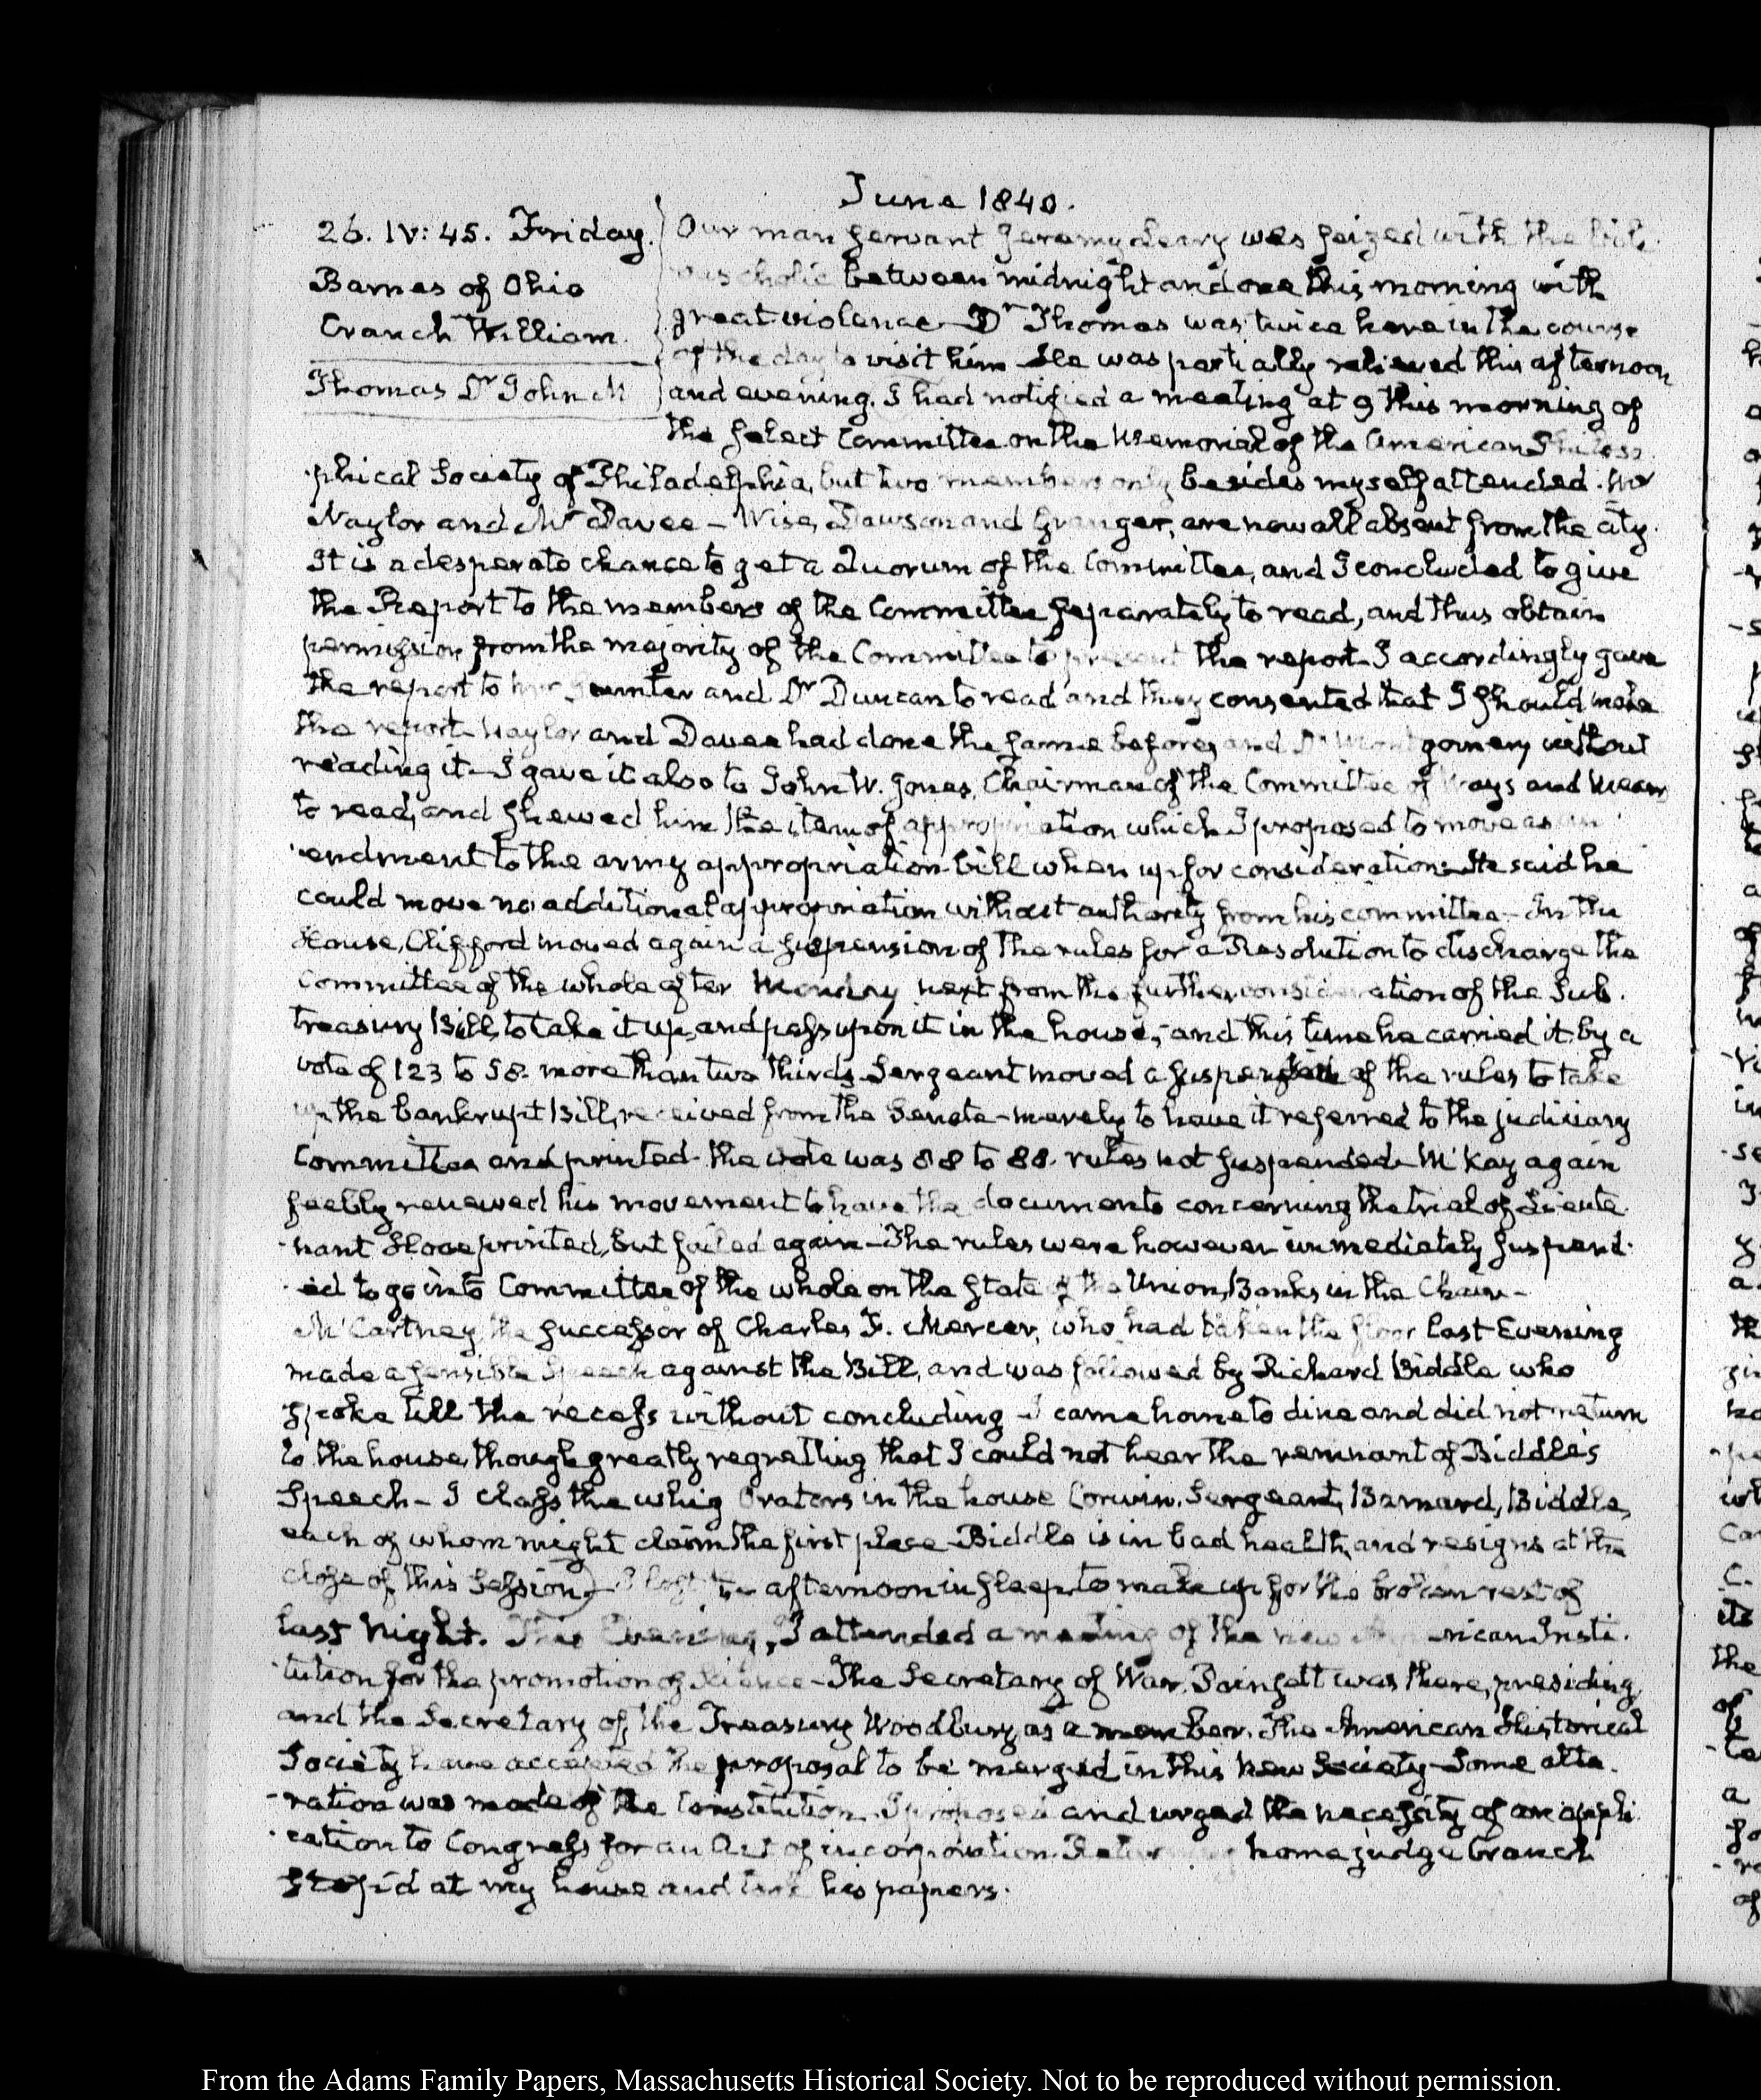 June 1840.
26. IV: 45. Friday.
Barnes of Ohio
Cranch William
Thomas Dr John M
Our man servant Jeremy Leary was seized with the bili-
ous cholic between midnight and one this morning with
great violence. Dr Thomas was twice here in the course
of the day to visit him. He was partially relieved this afternoon
and evening. I had notified a meeting at 9 this morning of
the select Committee on the Memorial of the American Philoso-
-phical Society of Philadelphia, but two members only besides myself attended. Mr
Naylor and Mr Davee - Wise, Dawson and Granger, are now all absent from the city.
It is a desperate chance to get a Quorum of the Committee, and I concluded to give
the Report to the members of the Committee separately to read, and thus obtain
permission from the majority of the Committee to present the report. I accordingly gave
the report to Hunter and Dr Duncan to read and they consented that I should make
the report. Naylor and Davee had done the same before, and Dr Montgomery without
reading it. I gave it also to John W. Jones, Chairman of the Committee of Ways and Means
to read, and shewed him the item of appropriation which I proposed to move as an am-
-endment to the army appropriation bill when up for consideration. He said he
could move no additional appropriation without authority from his committee. - In the
House, Clifford moved again a suspension of the rules for a Resolution to discharge the
Committee of the whole after Monday next from the further consideration of the Sub-
treasury Bill, to take it up, and pass upon it in the house, - and this time he carried it by a
vote of 123 to 58. more than two thirds. Sergeant moved a suspension of the rules to take
up the bankrupt Bill, received from the Senate - merely to have it referred to the judiciary
Committee and printed. the vote was 88 to 88. rules not suspended. McKay again
feebly renewed his movement to have the documents concerning the trial of Lieute-
-nant Hooe printed, but failed again - The rules were however immediately suspend-
-ed to go into Committee of the whole on the State of the Union, Banks in the Chair -
McCartney, the successor of Charles F. Mercer, who had taken the floor last Evening
made a sensible Speech against the Bill, and was followed by Richard Biddle who
spoke till the recess without concluding - I came home to dine and did not return
to the house, though greatly regretting that I could not hear the remnant of Biddle's
Speech - I class the whig Orators in the house Corwin, Sergeant, Barnard, Biddle,
each of whom might claim the first place - Biddle is in bad health, and resigns at the
close of this Session) - I lost the afternoon in sleep, to make up for the broken rest of
last Night. This Evening, I attended a meeting of the new American Insti-
-tution for the promotion of Science - The Secretary of War, Poinsett was there, presiding
and the Secretary of the Treasury Woodbury as a member. The American Historical
Society have accepted the proposal to be merged in this new Society - Some alte-
-ration was made of the Constitution. I proposed and urged the necessity of an appli-
-cation to Congress for an Act of incorporation. Returning home judge Cranch
stop'd at my house and took his papers.
From the Adams Family Papers, Massachusetts Historical Society. Not to be reproduced without permission.